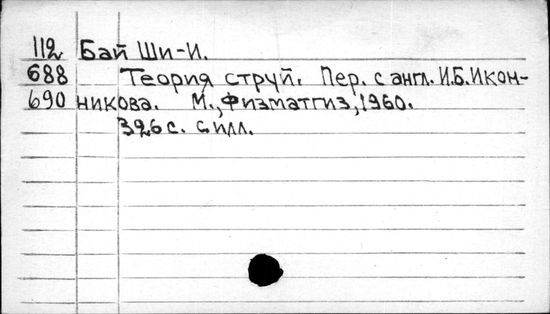 112 Бай Ши-И.
688 Теория струй. Пер. с англ. И.Б.Икон-
690 никова. М., Физматгиз, 1960.
326 с. с илл.